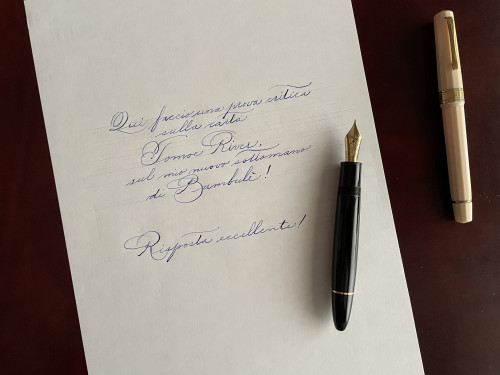 Qui faccio una prova critica
sulla carta
Tomoe River,
sul mio nuovo sottomano
di Bambulè!
Risposta eccellente!